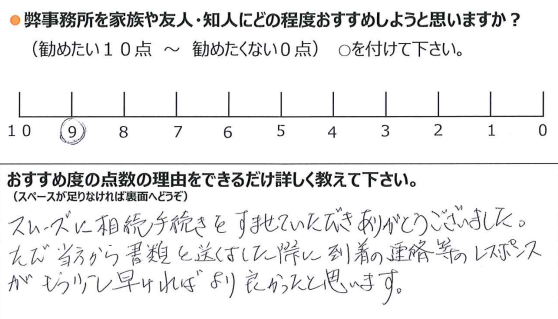 ●弊事務所を家族や友人・知人にどの程度おすすめしようと思いますか？
（勧めたい１０点　～　勧めたくない０点）　○を付けて下さい。
10 9 8 7 6 5 4 3 2 1 0
おすすめ度の点数の理由をできるだけ詳しく教えて下さい。
（スペースが足りなければ裏面へどうぞ）
スムーズに相続手続きをすませていただきありがとうございました。
ただ当方から書類を送くました際に到着の連絡等のレスポンス
がもう少し早ければより良かったと思います。